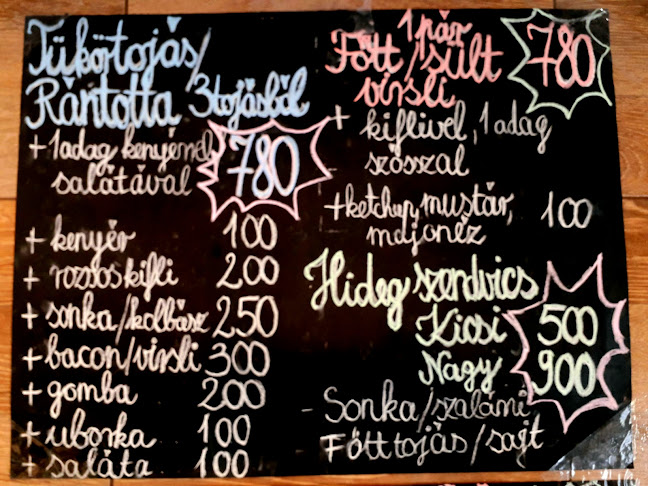 Tükörtojás/
Rántotta 3 tojásból
+ 1 adag kenyérrel,
salátával
780
+ kenyér 100
+ rozsos kifli 200
+ sonka/kolbász 250
+ bacon/virsli 300
+ gomba 200
+ uborka 100
+ saláta 100
1 pár
Főtt/sült
virsli
780
+ kiflivel, 1 adag
szósszal
+ ketchup, mustár,
majonéz 100
Hideg szendvics
Kicsi 500
Nagy 900
- Sonka/szalámi
Főtt tojás/sajt